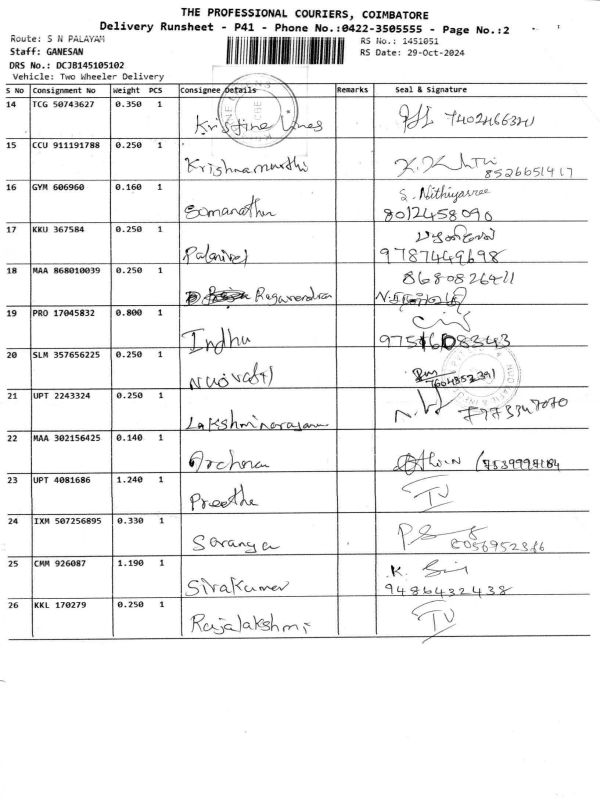 THE PROFESSIONAL COURIERS, COIMBATORE
Delivery Runsheet - P41 - Phone No.:0422-3505555 - Page No.:2
Route: S N PALAYAM
RS No.: 1451051
Staff: GANESAN
RS Date: 29-Oct-2024
DRS No.: DCJB145105102
Vehicle: Two Wheeler Delivery
S No Consignment No Weight PCS Consignee Details Remarks Seal & Signature
14 TCG 50743627 0.350 1
Kristine Lines
15 CCU 911191788 0.250 1
Krishnamurthi
8526651417
16 GYM 606960 0.160 1
S. Nithiyasree
Somanathan
8012458090
17 KKU 367584 0.250 1
Palanivel
9787449698
18 MAA 868010039 0.250 1
8680826411
Ragavendra
19 PRO 17045832 0.800 1
Indhu
20 SLM 357656225 0.250 1
7604352391
21 UPT 2243324 0.250 1
Lakshminarayanan
22 MAA 302156425 0.140 1
Archana
23 UPT 4081686 1.240 1
Preetha
24 IXM 507256895 0.330 1
Saranya
8056952366
25 CMM 926087 1.190 1
K.
Sivakumar
9486432438
26 KKL 170279 0.250 1
Rajalakshmi